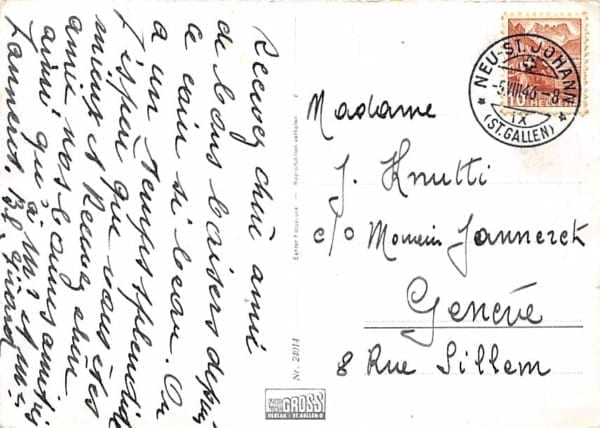 Recevez chère amie
de bons baisers depuis
ce coin si beau. On
a un temps splendide
J'espère que vous êtes
mieux et Recevez chère
amie nos bonnes amitiés
ainsi qu'à Mr et Mme
Janneret. Bl.
NEU-ST. JOHANN
-5.VIII.46-8
IX
(ST.GALLEN)
10 HELVETIA
Madame
J. Knutti
c/o Monsieur Jannerek
Genève
8 Rue Sillem
Echte Fotografie — Reproduktion verboten
Nr. 24014
GROSS
VERLAG ST. GALLEN-O